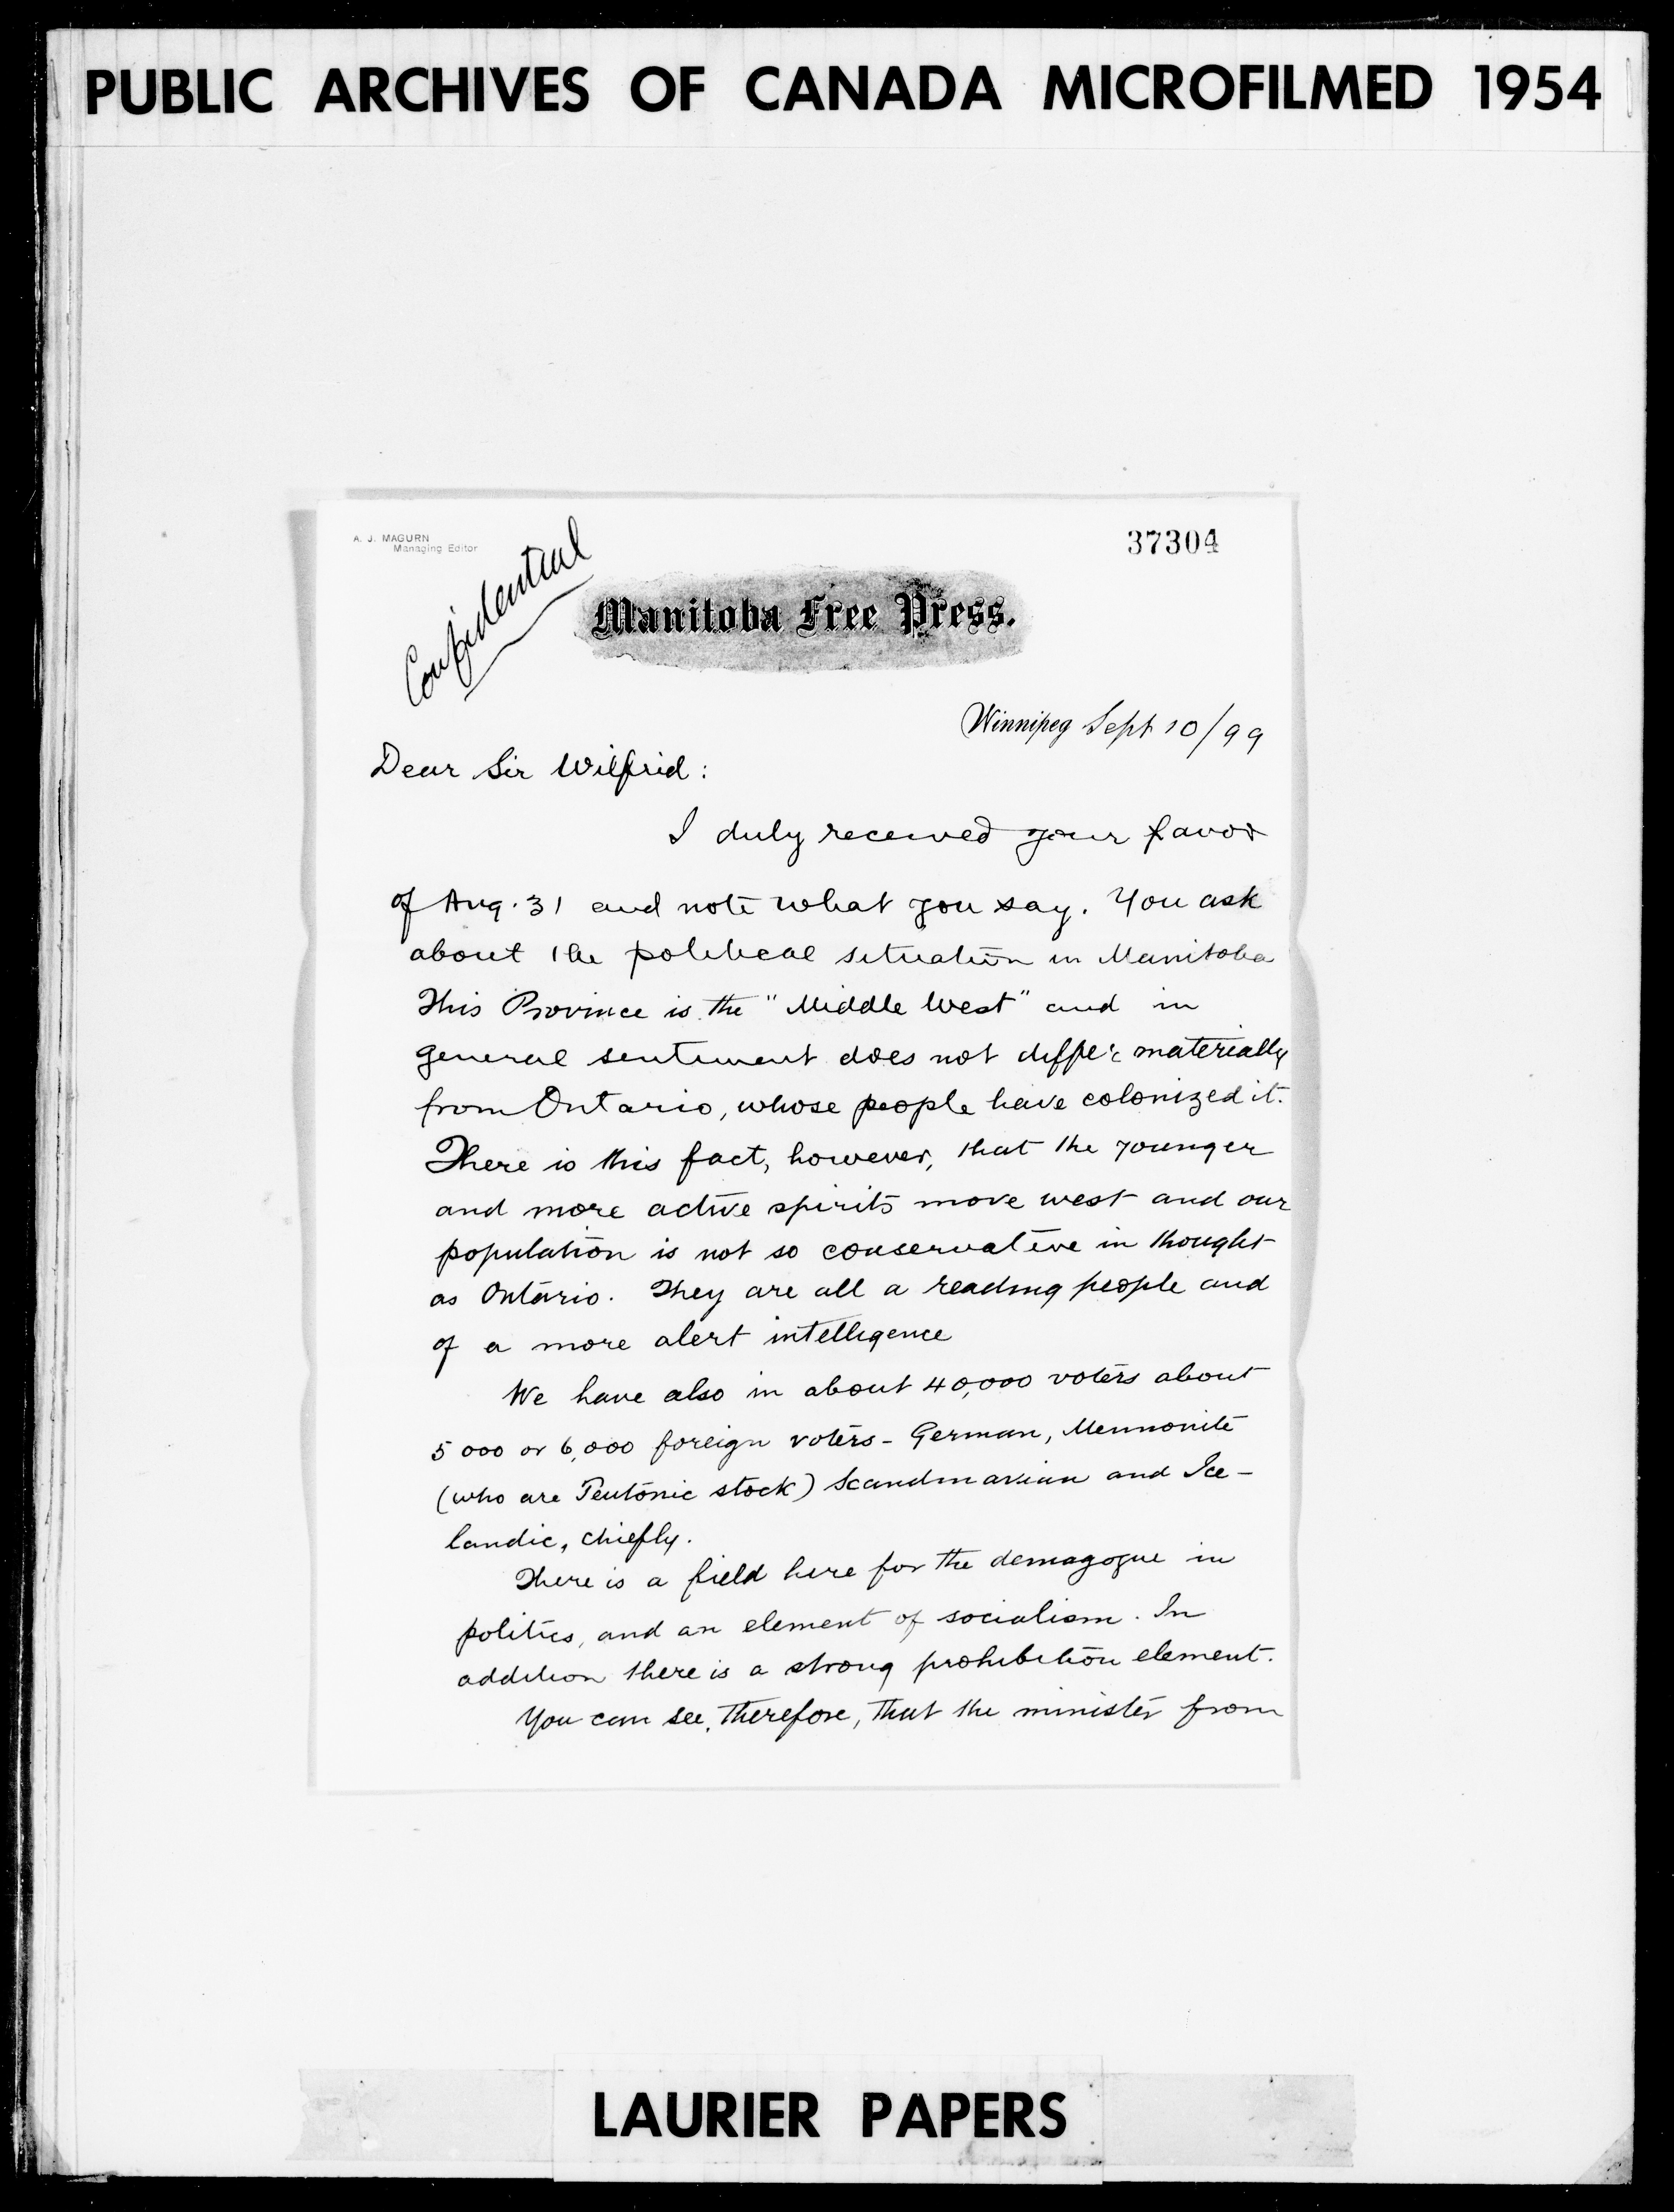 PUBLIC ARCHIVES OF CANADA MICROFILMED 1954
A. J. MAGURN
Managing Editor
37304
Confidential
Manitoba Free Press.
Winnipeg Sept 10/99
Dear Sir Wilfrid:
I duly received your favor
of Aug. 31 and note what you say. You ask
about the political situation in Manitoba
This Province is the "Middle West" and in
general sentiment does not differ materially
from Ontario, whose people have colonized it.
There is this fact, however, that the younger
and more active spirits move west and our
population is not so conservative in thought
as Ontario. They are all a reading people and
of a more alert intelligence
We have also in about 40,000 voters about
5 000 or 6,000 foreign voters - German, Mennonite
(who are Teutonic stock) Scandinavian and Ice-
landic, chiefly.
There is a field here for the demagogue in
politics, and an element of socialism. In
addition there is a strong prohibition element.
You can see, therefore, that the minister from
LAURIER PAPERS